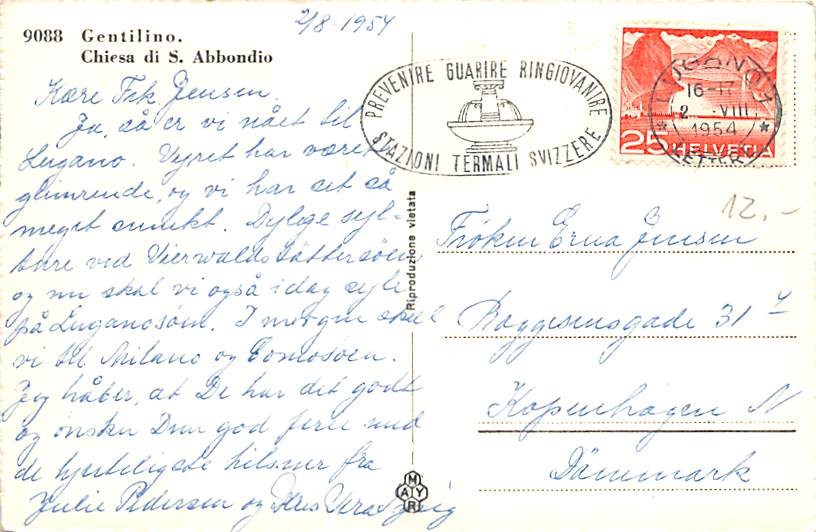 2/8-1954
9088 Gentilino.
Chiesa di S. Abbondio
Kære Frk Jensen.
Ja, så er vi nået til
Lugano. Vejret har været
glimrende, og vi har set så
meget smukt. Dejlige sejl-
ture ved Vierwaldstättersøen
og nu skal vi også idag sejle
på Luganosøen. I morgen skal
vi til Milano og Comosøen.
Jeg håber, at De har det godt
og ønsker Dem god ferie med
de hjerteligste hilsner fra
Julie Pedersen og
PREVENIRE GUARIRE RINGIOVANIRE
STAZIONI TERMALI SVIZZERE
LUGANO 1
16-17
2. VIII.
1954
LETTERE
25 HELVETIA
12.-
Riproduzione vietata
Frøken Erna Jensen
Baggesensgade 31
Kopenhagen N
Dänemark
MAYR